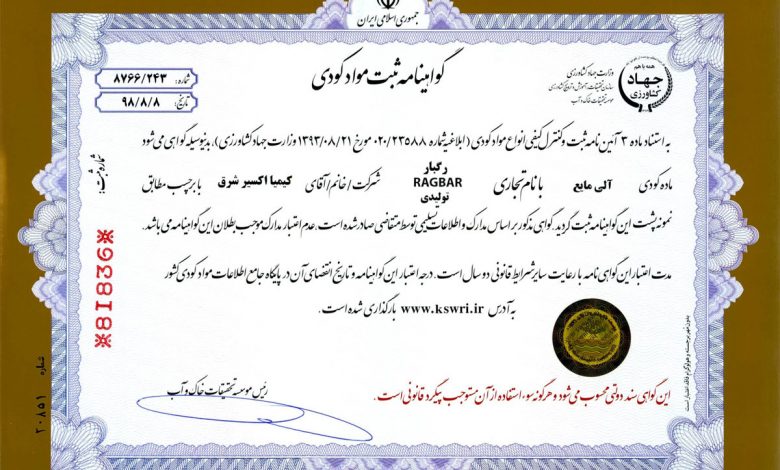 جمهوری اسلامی ایران
گواهینامه ثبت مواد کودی
شماره: ۸۷۶۶/۲۴۳
تاریخ: ۹۸/۸/۸
همه با هم
جهاد
کشاورزی
وزارت جهاد کشاورزی
سازمان تحقیقات، آموزش و ترویج کشاورزی
موسسه تحقیقات خاک و آب
به استناد ماده ۳ آئین نامه ثبت و کنترل کیفی انواع مواد کودی (ابلاغیه شماره ۰۲۰/۲۳۵۸۸ مورخ ۱۳۹۳/۰۸/۲۱ وزارت جهاد کشاورزی)، بدینوسیله گواهی می شود
ماده کودی آلی مایع با نام تجاری رگبار RAGBAR تولیدی شرکت/خانم/آقای کیمیا اکسیر شرق با برچسب مطابق
نمونه پشت این گواهینامه ثبت گردید. گواهی مذکور بر اساس مدارک و اطلاعات تسلیمی توسط متقاضی صادر شده است. عدم اعتبار مدارک موجب بطلان این گواهینامه می باشد.
مدت اعتبار این گواهی نامه با رعایت سایر شرایط قانونی دو سال است. درجه اعتبار این گواهینامه و تاریخ انقضای آن در پایگاه جامع اطلاعات مواد کودی کشور
به آدرس www.kswri.ir بارگذاری شده است.
رئیس موسسه تحقیقات خاک و آب
این گواهی سند دولتی محسوب می شود و هرگونه سوء استفاده از آن مستوجب پیگرد قانونی است.
شماره ثبت:
81836
شماره ۲۰۸۵۱
بدون مهر برجسته و هولوگرام فاقد اعتبار است